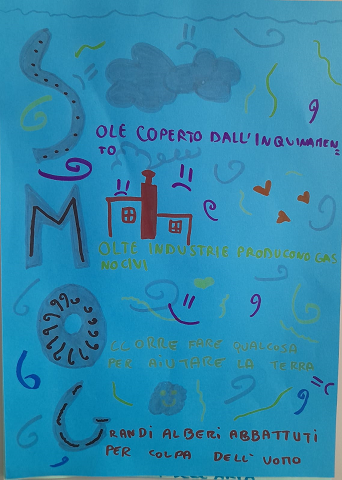 S
OLE COPERTO DALL'INQUINAMEN
TO.
M
OLTE INDUSTRIE PRODUCONO GAS
NOCIVI.
O
CCORRE FARE QUALCOSA
PER AIUTARE LA TERRA
G
RANDI ALBERI ABBATTUTI
PER COLPA DELL'UOMO